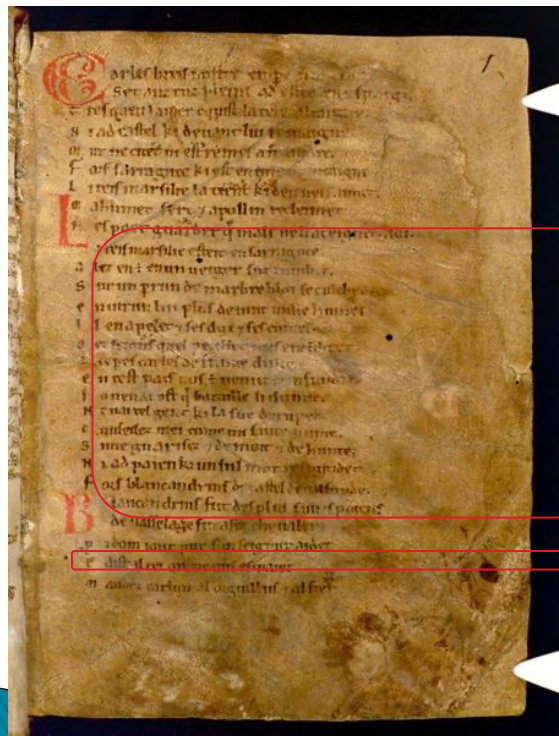 1
Carles li reis nostre empe
Set anz tuz pleins ad estet en espaigne
Tresquen la mer cunquist la tere altaigne
N i ad castel ki devant lui remaigne
M ur ne citet ni est remes a fraindre
F ors sarraguce ki est en une muntaigne
L i reis marsilie la tient ki deu nenaimet
M ahumet sert 7 apollin recleimet
N es poet guarder q mals ne li ateignet aoi
Li reis marsilie esteit en sarraguce
A lez en e en un verger suz lumbre
S ur un perrun de marbre bloi se culched
E nvirun lui plus de vint milie humes
I l en apelet 7 ses dux 7 ses cuntes
O ez seignurs quel pecchet nus encumbret
carles de france dulce
E n cest pais nos e venuz cunfundre
J o nen ai ost q bataille li dunne
N en ai tel gent ki la sue derumpet
C unseilez mei cume mi savie hume
S i me guarisez 7 de mort 7 de hunte
N i ad paien ki un sul mot respundet
F ors blancandrins de castel de valfunde
Blancandrins fut des plus saives paiens
de vasselage fut asez chevaler
P rozdom i out pur sun seignur aider
E dist al rei or ne vus esmaiez
M andez carlun al orguillus 7 al fier